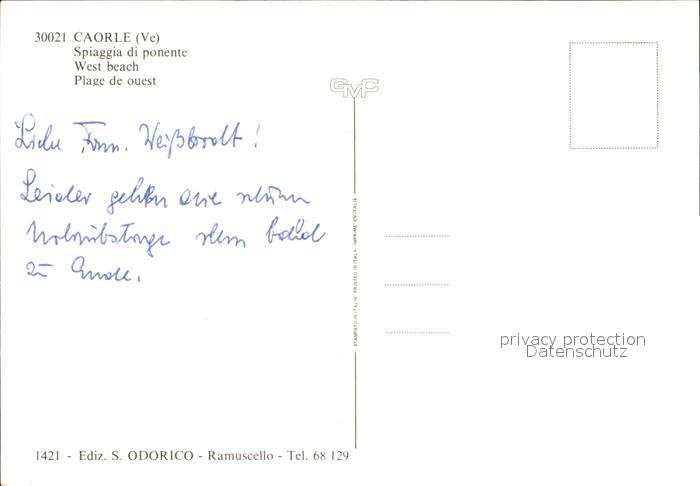 30021 CAORLE (Ve)
Spiaggia di ponente
West beach
Plage de ouest
GMC
Liebe Fam. Weißbrodt!
Leider gehen die schönen
Urlaubstage schon bald
zu Ende.
STAMPATO IN ITALIA - PRINTED IN ITALY - IMPRIMÉ EN ITALIE
privacy protection
Datenschutz
1421 - Ediz. S. ODORICO - Ramuscello - Tel. 68.129